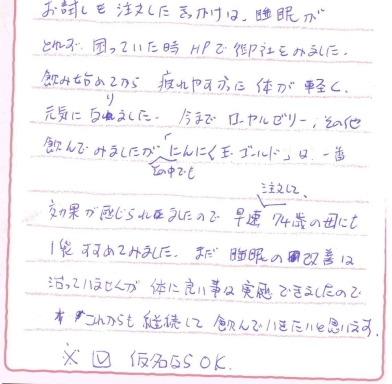 お試しを注文したきっかけは、睡眠が
とれず、困っていた時HPで御社をみました。
飲み始めてから 疲れやすかった体が軽く、
元気になりました。 今までローヤルゼリー、その他
飲んでみましたが「にんにく玉ゴールド」は、一番
その中でも
注文して、
効果が感じられましたので 早速 74歳の母にも
1袋すすめてみました。まだ 睡眠の改善は
出っていませんが 体に良い事は実感できましたので
これからも継続して飲んでいきたいと思います。
※ ☑ 仮名ならOK.